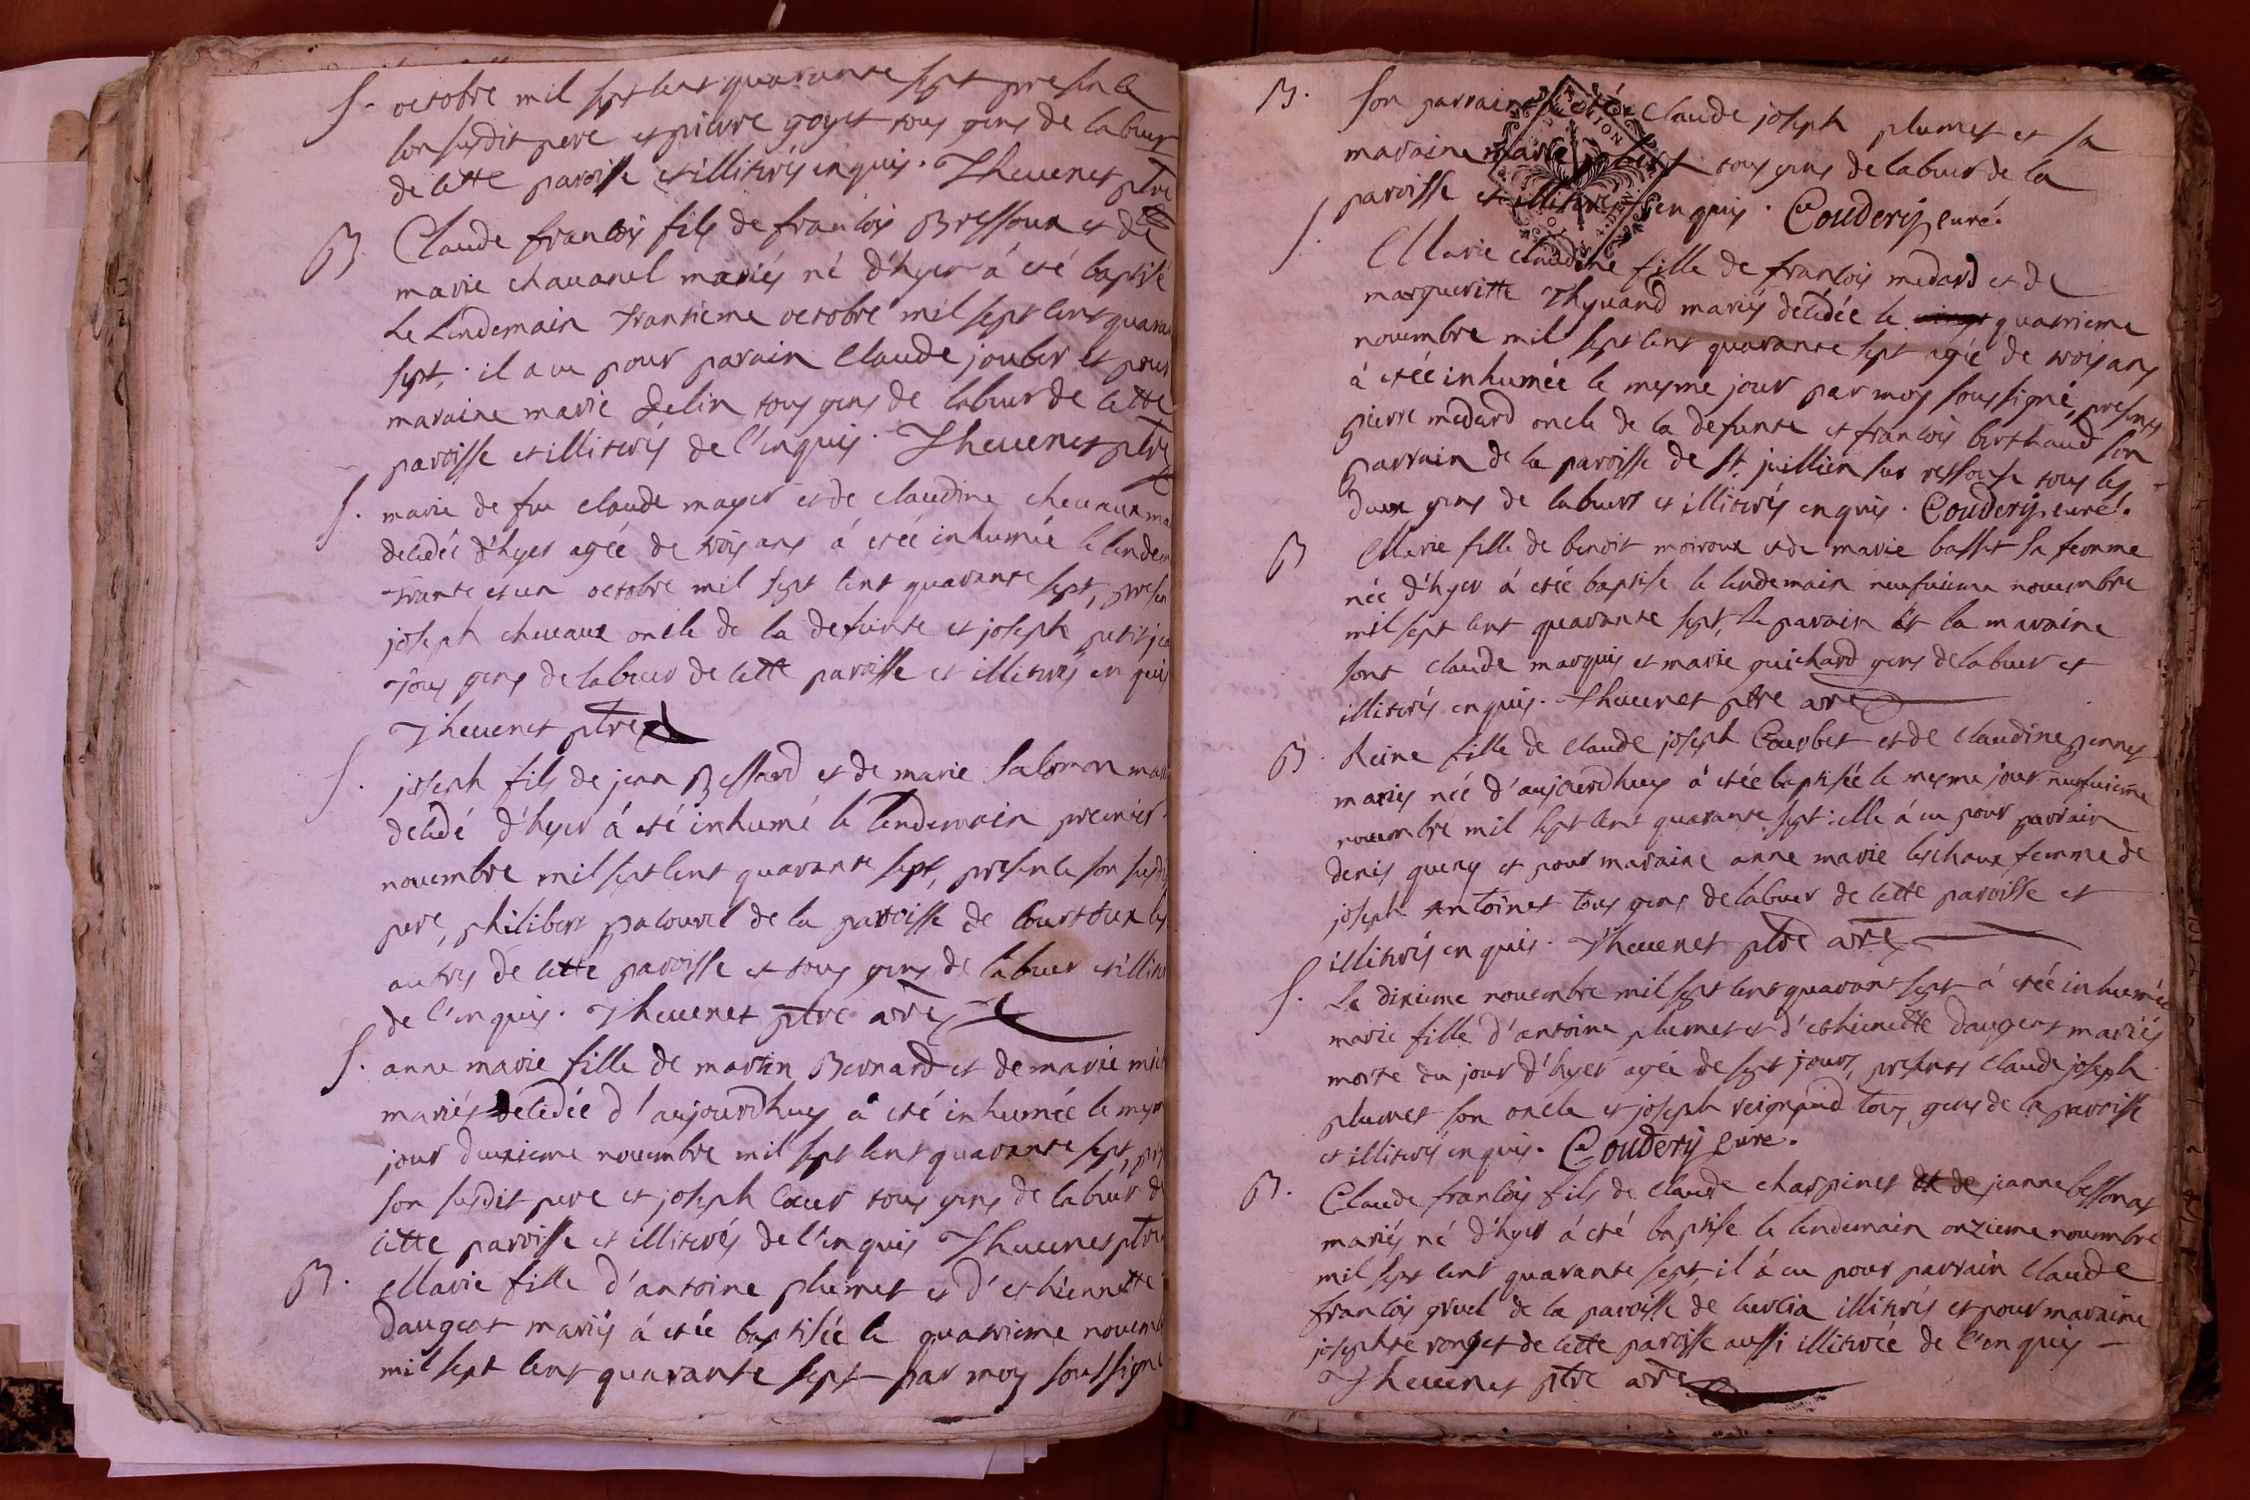 S. octobre mil sept cent quarante sept presence
son susdit pere et pierre goyet tous gens de labeur
de cette paroisse et illiterés enquis. Theuenet ptre
B Claude françois fils de françois Bressoux et de
marie chauanel mariés né d'hyer á eté baptisé
le lendemain trantieme octobre mil sept cent quara
sept,. il a eu pour parain Claude joubert et pour
maraine marie gelin tous gens de labeur de cette
paroisse et illiterés de l'enquis. Theuenet ptre
S. marie de feu claude mayer et de claudine cheuaux ma
decedée d'hyer agée de trois ans á etée inhumée le lendem
trante et un octobre mil sept cent quarante sept, presen
joseph cheuaux oncle de la defunte et joseph petitjea
Tous gens de labeur de cette paroisse et illiterés en quis
Theuenet ptre
S. joseph fils de jean Bessard et de marie Salomon mar
decedé d'hyer á eté inhumé le lendemain premier
nouembre mil sept cent quarante sept, presence son susdi
pere, philibert pacouret de la paroisse de Courtoux les
autres de cette paroisse et tous gens de labeur et illiter
de l'enquis. Theuenet ptre vre
S. anne marie fille de martin Bernard et de marie mich
mariés decedée d'aujourdhuy á eté inhumée le mesm
jour deuxieme nouembre mil sept cent quarante sept, pres
son susdit pere et joseph Cœur tous gens de labeur de
cette paroisse et illiterés de l'enquis Theuenet ptre
B. Marie fille d'antoine plumet et d'ethiennette
Daugeat mariés á etée baptisée le quatrieme nouemb
mil sept cent quarante sept par moy soussigné
B. son parrain a eté Claude joseph plumet et sa
maraine marie tous gens de labeur de la
paroisse et illiterés enquis. Couderi curé.
S. Marie claudine fille de françois medard et de
margueritte Thyuand mariés decedée le vingt quatrieme
nouembre mil sept cent quarante sept agée de trois ans
á etée inhumée le mesme jour par moy soussigné, presents
pierre medard oncle de la defunte et françois berthaud son
parrain de la paroisse de St. juillien sur ressouse tous les
deux gens de labeur et illiterés enquis. Couderi curé.
B Marie fille de benoit moiroux et de marie basset sa femme
née d'hyer á etée baptisé le lendemain neufuieme nouembre
mil sept cent quarante sept, le parain et la maraine
sont claude marquis et marie guichard gens de labeur et
illiterés enquis. Theuenet ptre vre
B. Reine fille de Claude joseph Courbet et de Claudine gennes
mariés née d'aujourdhuy á etée baptisée le mesme jour neufuieme
nouembre mil sept cent quarante sept: elle á eu pour parrain
denis queny et pour maraine anne marie leschaux femme de
joseph Antoinet tous gens de labeur de cette paroisse et
illiterés enquis. Theuenet ptre vre
S. Le dixieme nouembre mil sept cent quarant sept á etée inhumée
marie fille d'antoine plumet et d'ethienette daugeat mariés
morte du jour d'hyer agée de sept jours, presents Claude joseph
plumet son oncle et joseph reignaud tous gens de la paroisse
et illiterés enquis. Couderi cure.
B. Claude françois fils de claude charpinet et de jeanne bessonat
mariés né d'hyer á eté baptisé le lendemain onzieme nouembre
mil sept cent quarante sept, il á eu pour parrain Claude
françois gruel de la paroisse de Curcia illiterés et pour maraine
josephte ronget de cette paroisse aussi illiterée de l'enquis -
Theuenet ptre vre